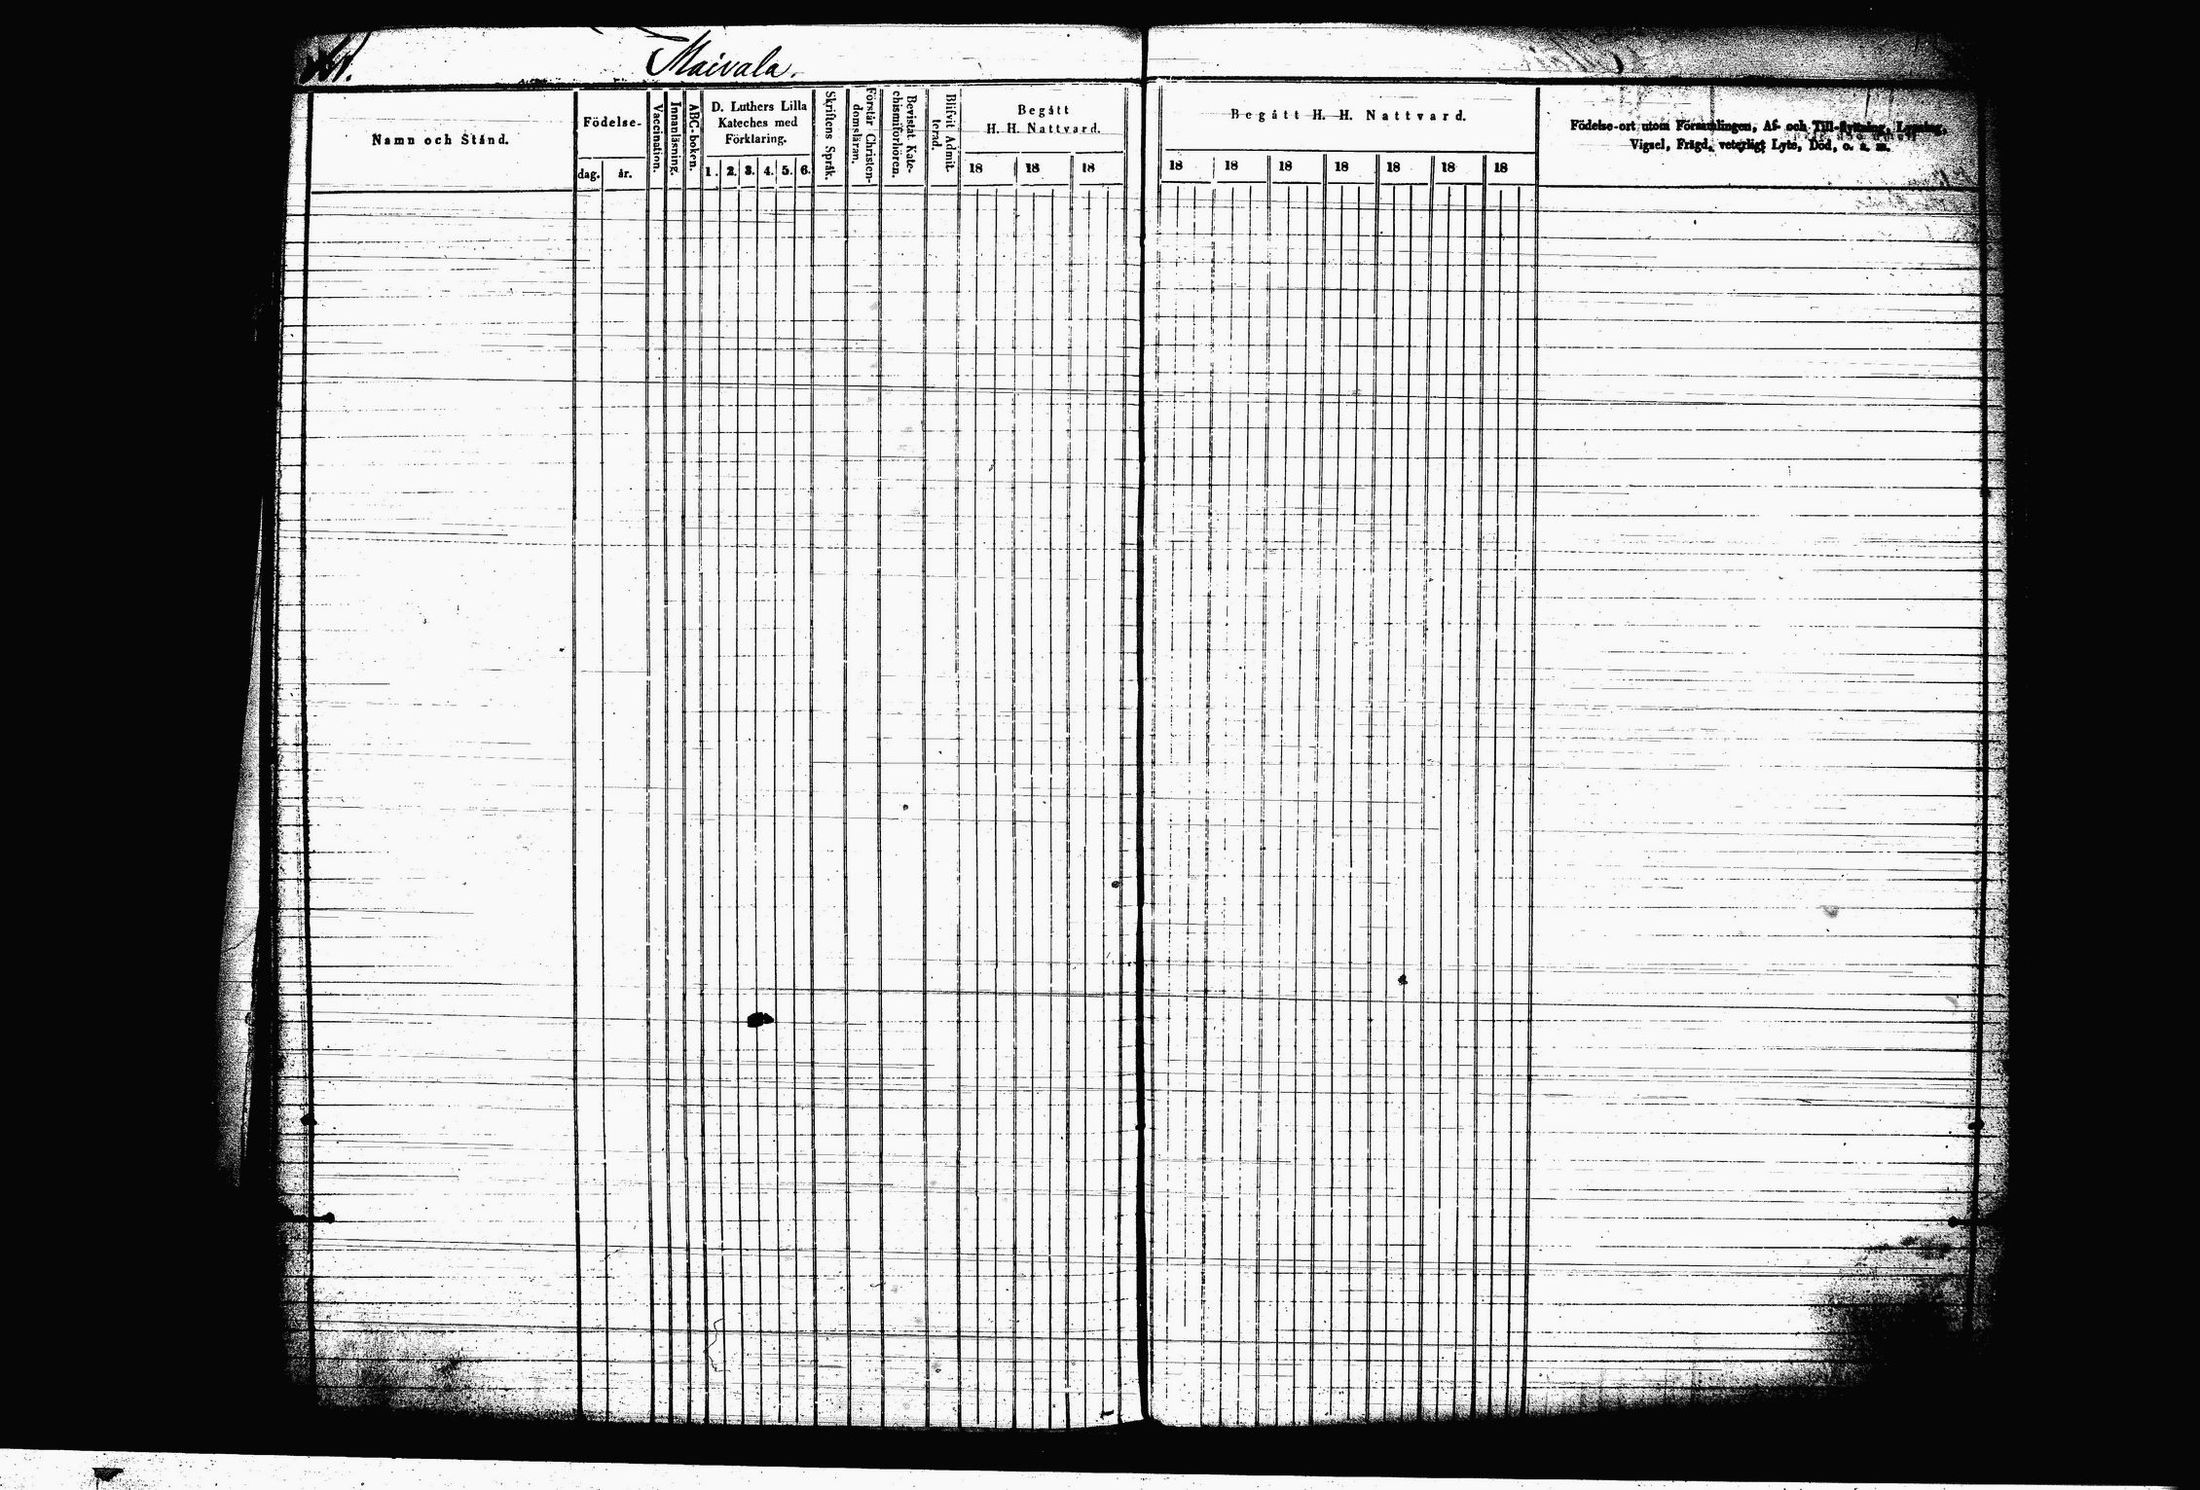 Maivala.
Namn och Stånd.
Födelse-
dag.
år.
Vaccination.
Innanläsning.
ABC-boken.
D. Luthers Lilla
Kateches med
Förklaring.
1. 2. 3. 4. 5. 6.
Skriftens Språk.
Förstår Christen-
domsläran.
Bevistat Kate-
chismiförhören.
Blifvit Admit-
terad.
Begått
H. H. Nattvard.
18 18 18
Begått H. H. Nattvard.
18 18 18 18 18 18 18
Födelse-ort utom Församlingen, Af- och Till-flyttning, Lysning,
Vigsel, Frägd, veterligt Lyte, Död, o. s. m.